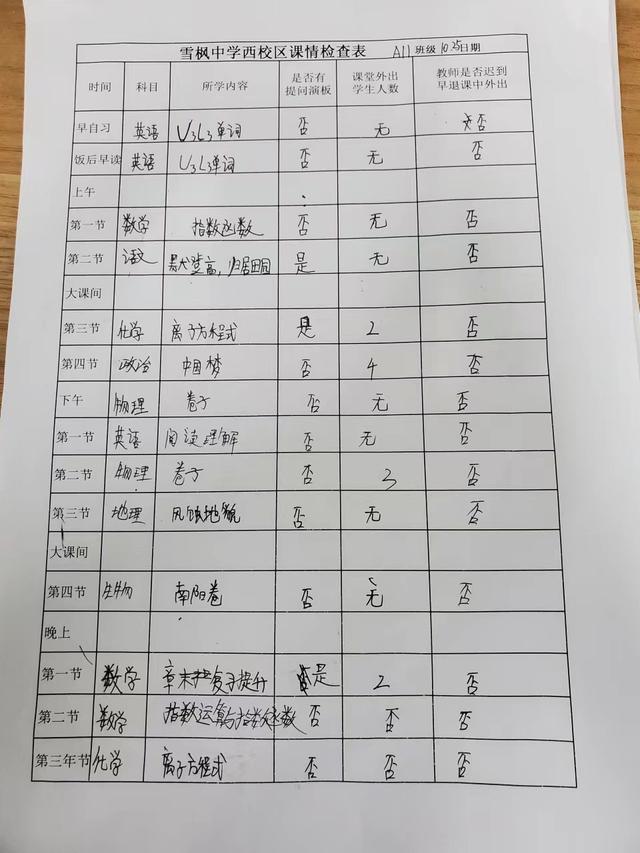 雪枫中学西校区课情检查表 A11班级10.25日期
时间 科目 所学内容 是否有提问演板 课堂外出学生人数 教师是否迟到早退课中外出
早自习 英语 U3L3单词 否 无 否
饭后早读 英语 U3L3单词 否 无 否
上午
第一节 数学 指数函数 否 无 否
第二节 语文 默登高,归居田园 是 无 否
大课间
第三节 化学 离子方程式 是 2 否
第四节 政治 中国梦 否 4 否
下午 物理 卷子 否 无 否
第一节 英语 阅读理解 否 无 否
第二节 物理 卷子 否 3 否
第三节 地理 风蚀地貌 否 无 否
大课间
第四节 生物 南阳卷 否 无 否
晚上
第一节 数学 章末复习提升 是 2 否
第二节 数学 指数运算与指数函数 否 否 否
第三年节 化学 离子方程式 否 否 否